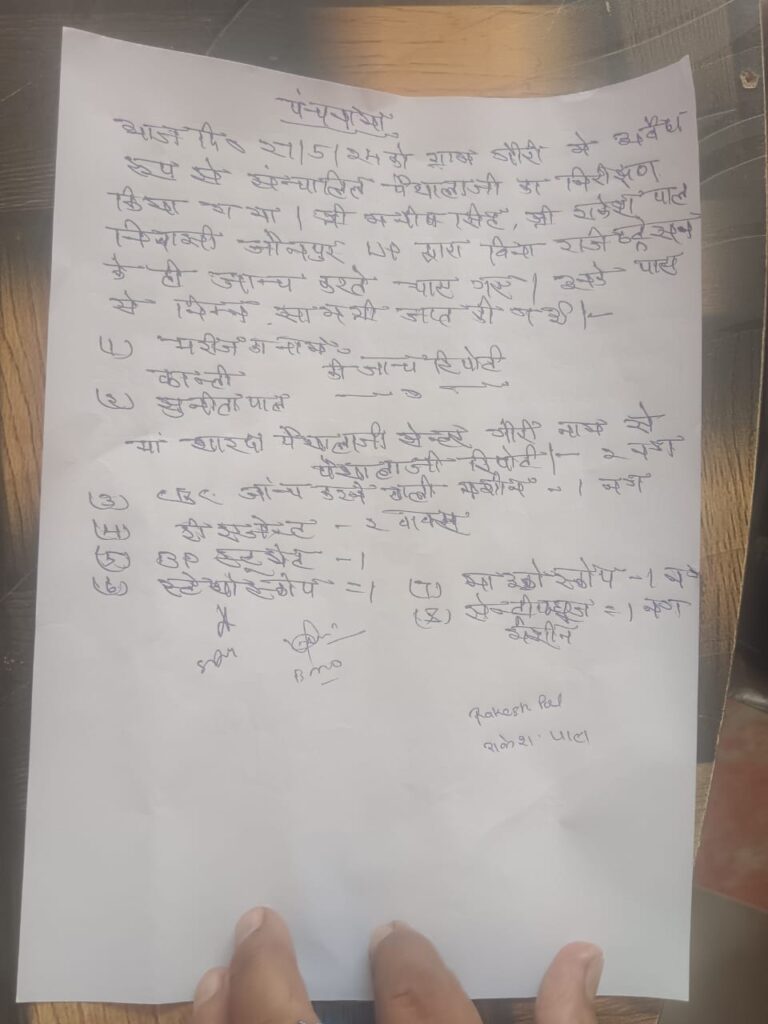 पंचनामा
आज दि० 27/5/25 को ग्राम जीरी में अवैध
रूप से संचालित पैथालाजी का निरीक्षण
किया गया। श्री सिंह, श्री राकेश पाल
निवासी जौनपुर UP द्वारा बिना
के ही जान्च करते पाए गए। इनके पास
से निम्न सामग्री जप्त की गयी।-
(1) मरीज का नाम-
कान्ती की जान्च रिपोर्ट
(2) सुनीता पाल — " —
मां शारदा पैथालाजी सेन्टर जीरी नाम से
पैथालाजी रिपोर्ट।- 2 नग
(3) CBC जांच करने वाली मशीन - 1 नग
(4) री एजेन्ट - 2 वाक्स
(5) BP - 1
(6) स्टेथोस्कोप = 1 (7) माइक्रोस्कोप - 1 नग
(8) सेन्टीफ्यूज = 1 नग
मशीन
BMO
Rakesh Pal
राकेश पाल